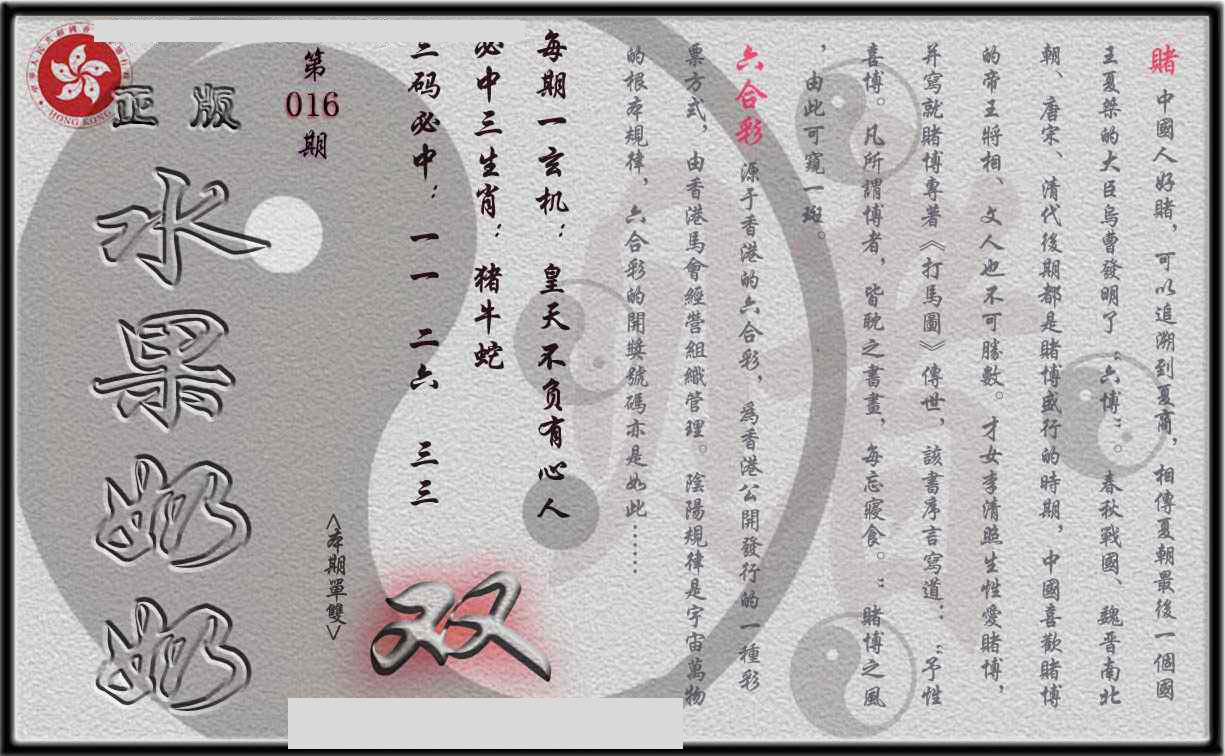 賭 中國人好賭，可以追溯到夏商，相傳夏朝最後一個國
王夏桀的大臣烏曹發明了“六博”。春秋戰國、魏晋南北
朝、唐宋、清代後期都是賭博盛行的時期，中國喜歡賭博
的帝王將相、文人也不可勝數。才女李清照生性愛賭博，
并寫就賭博專著《打馬圖》傳世，該書序言寫道：“予性
喜博。凡所謂博者，皆耽之晝，每忘寢食。”賭博之風
，由此可窺一斑。
六合彩 源于香港的六合彩，為香港公開發行的一種彩
票方式，由香港馬會經營組織管理。陰陽規律是宇宙萬物
的根本規律，六合彩的開獎號碼亦是如此……
每期一玄机：皇天不负有心人
必中三生肖：猪牛蛇
三码必中：一一 二六 三三
第
016
期
<本期單雙>
双
正版
水果奶奶
HONG KONG